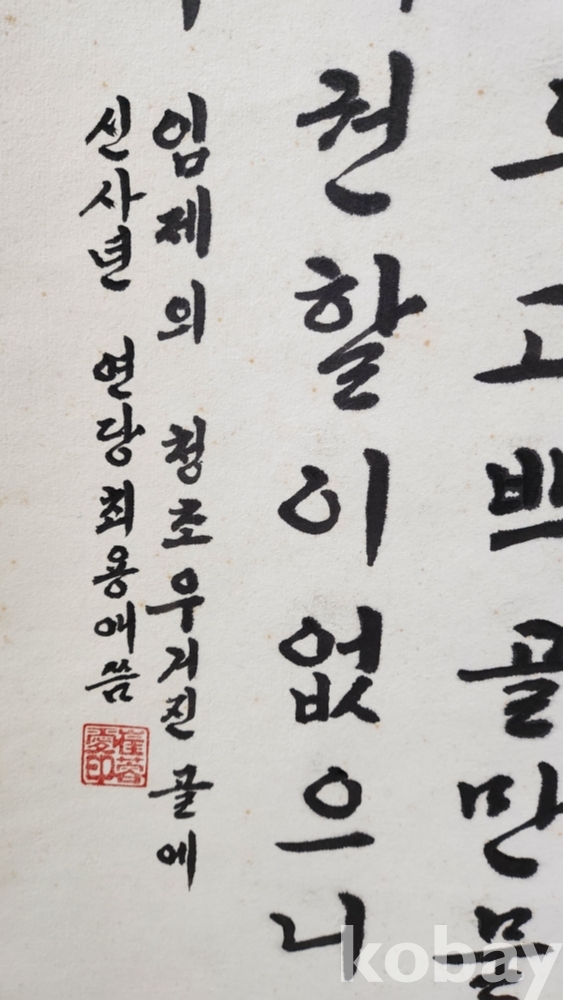 고백골만묻
권할이없으니
임제의 청초우거진 골에
신사년 연당최용애씀
崔蓉愛印
kobay